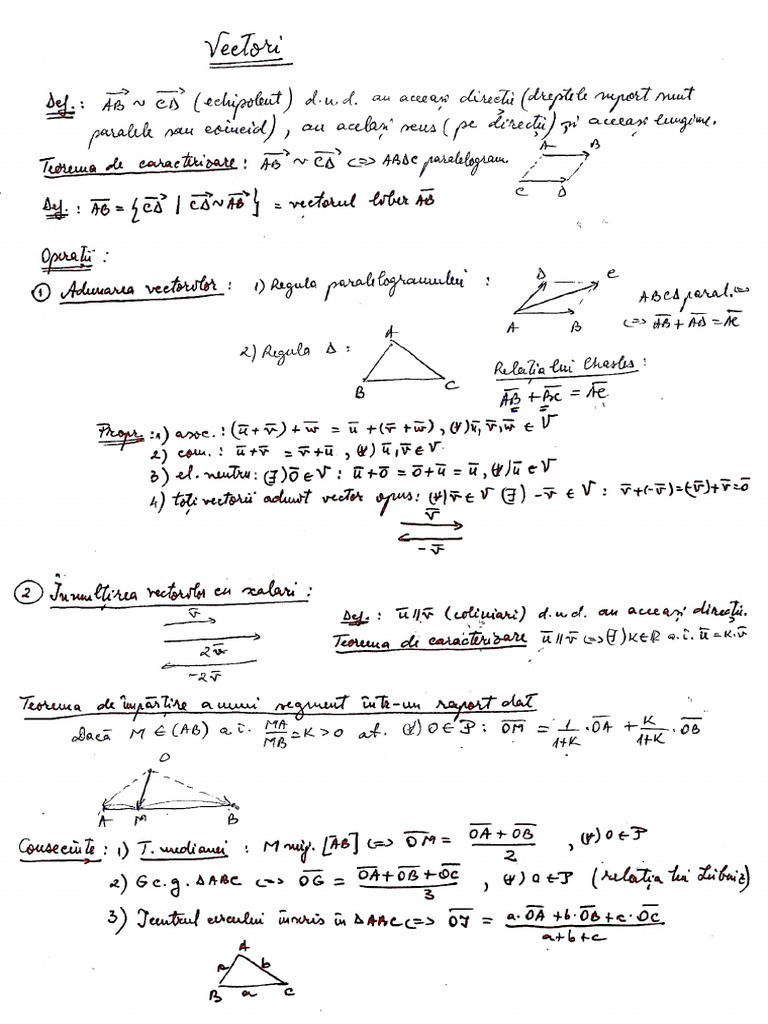 Vectori
Def.: AB ~ CD (echipolent) d.n.d. au aceeași direcții (dreptele suport sunt
paralele sau coincid), au același sens (pe direcții) și aceeași lungime.
Teorema de caracterizare: AB ~ CD <=> ABDC paralelogram
A B
C D
Def.: AB = {CD | CD ~ AB} = vectorul liber AB
Operații:
① Adunarea vectorilor: 1) Regula paralelogramului:
D C
A B
ABCD paral. <=>
<=> AB + AD = AC
2) Regula Δ:
A
B C
Relația lui Chasles:
AB + BC = AC
Propr.: 1) asoc.: (u+v)+w = u+(v+w), (∀)u,v,w ∈ V
2) com.: u+v = v+u, (∀)u,v ∈ V
3) el. neutru: (∃)0 ∈ V: u+0 = 0+u = u, (∀)u ∈ V
4) toți vectorii admit vector opus: (∀)v ∈ V (∃) -v ∈ V: v+(-v)=(-v)+v=0
v
-v
② Înmulțirea vectorilor cu scalari:
v
2v
-2v
Def.: u∥v (coliniari) d.n.d. au aceeași direcții.
Teorema de caracterizare u∥v <=> (∃)K∈R a.î. u=K·v
Teorema de împărțire a unui segment într-un raport dat
Dacă M ∈ (AB) a.î. MA/MB = K > 0 at. (∀) O ∈ P: OM = 1/(1+K) · OA + K/(1+K) · OB
O
A M B
Consecințe: 1) T. medianei: M mij. [AB] <=> OM = (OA + OB)/2, (∀) O ∈ P
2) G c.g. ΔABC <=> OG = (OA + OB + OC)/3, (∀) O ∈ P (relația lui Leibniz)
3) I centrul cercului înscris în ΔABC <=> OI = (a·OA + b·OB + c·OC)/(a+b+c)
A
c b
B a C